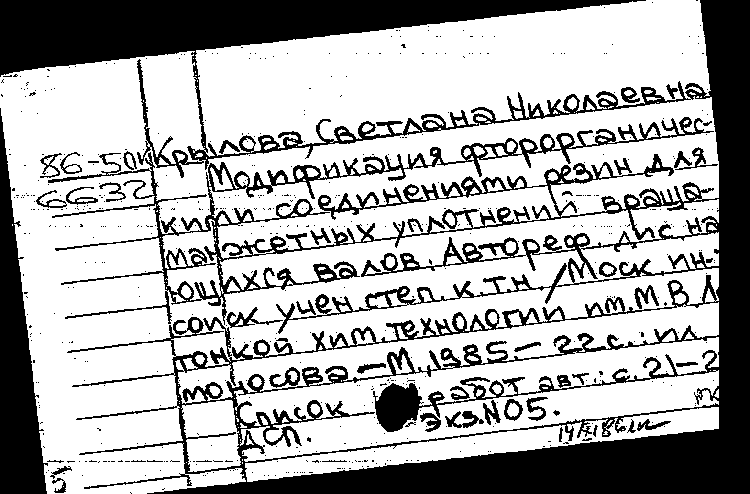 Крылова, Светлана Николаевна.
86-50к
6632
Модификация фторорганичес-
кими соединениями резин для
манжетных уплотнений враща-
ющихся валов. Автореф. дис. на
соиск. учен. степ. к.т.н. / Моск. ин-т
тонкой хим. технологии им. М.В. Ло
моносова. — М., 1985. — 22 с. : ил.
Список работ авт.: с. 21-2
ДСП. Экз. N05.
5